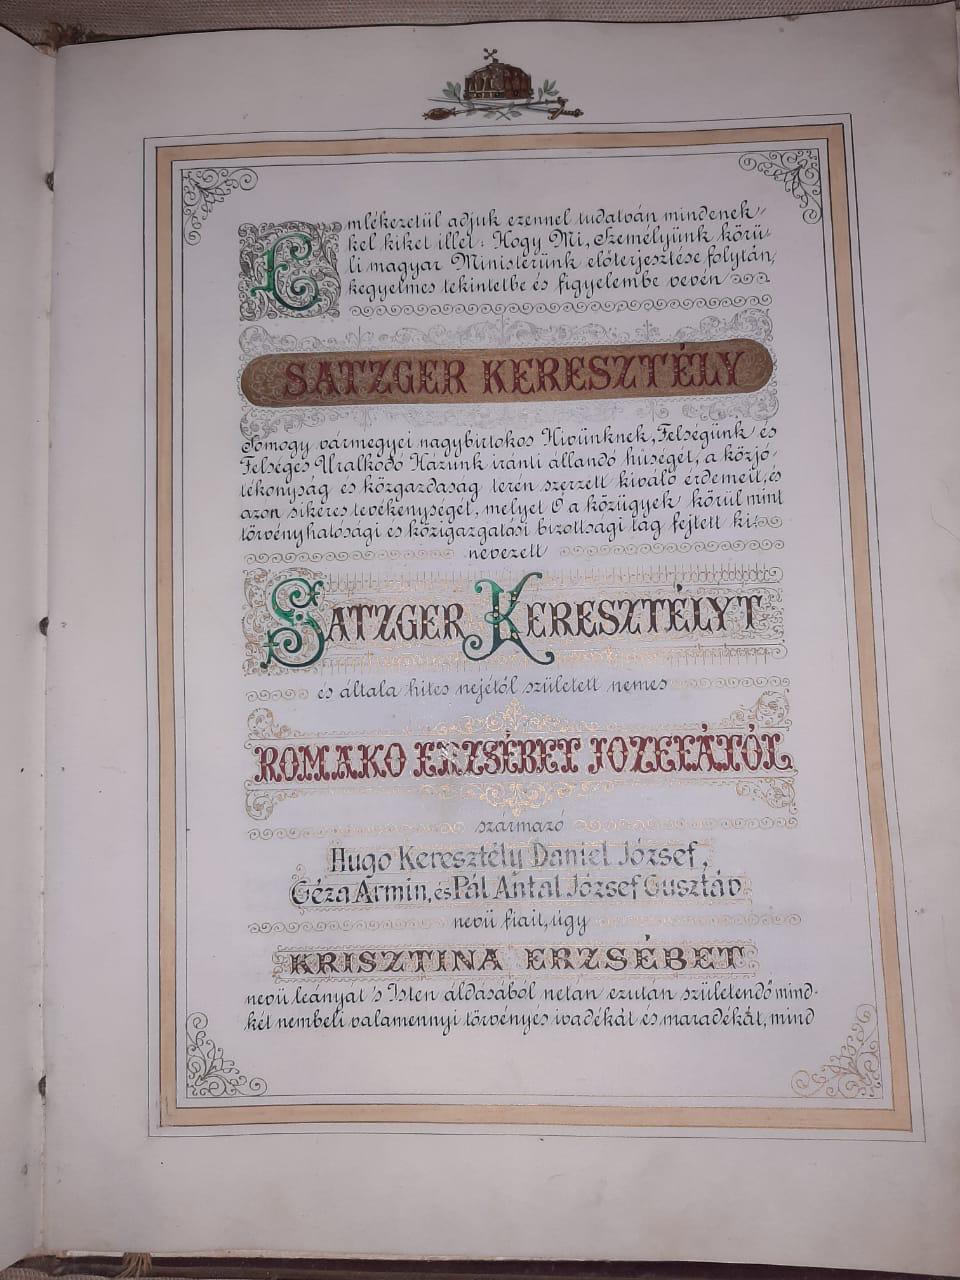 Emlékezetül adjuk ezennel tudatván mindenek-
kel kiket illet: Hogy Mi, Személyünk körü-
li magyar Ministerünk előterjesztése folytán,
kegyelmes tekintetbe és figyelembe vevén
SATZGER KERESZTÉLY
Somogy vármegyei nagybirtokos Hivünknek, Felségünk és
Felséges Uralkodó Házunk iránti állandó hűségét, a közjó-
tékonyság és közgazdaság terén szerzett kiváló érdemeit, és
azon sikeres tevékenységét, melyet Ő a közügyek körül mint
törvényhatósági és közigazgatási bizottsági tag fejtett ki:
nevezett
SATZGER KERESZTÉLYT
és általa hites nejétől született nemes
ROMAKO ERZSÉBET JOZEFÁTÓL
származó
Hugo Keresztély Daniel József,
Géza Armin, és Pál Antal József Gusztáv
nevü fiait, úgy
KRISZTINA ERZSÉBET
nevü leányát 's Isten áldásából netán ezután születendő mind-
két nembeli valamennyi törvényes ivadékát és maradékát, mind